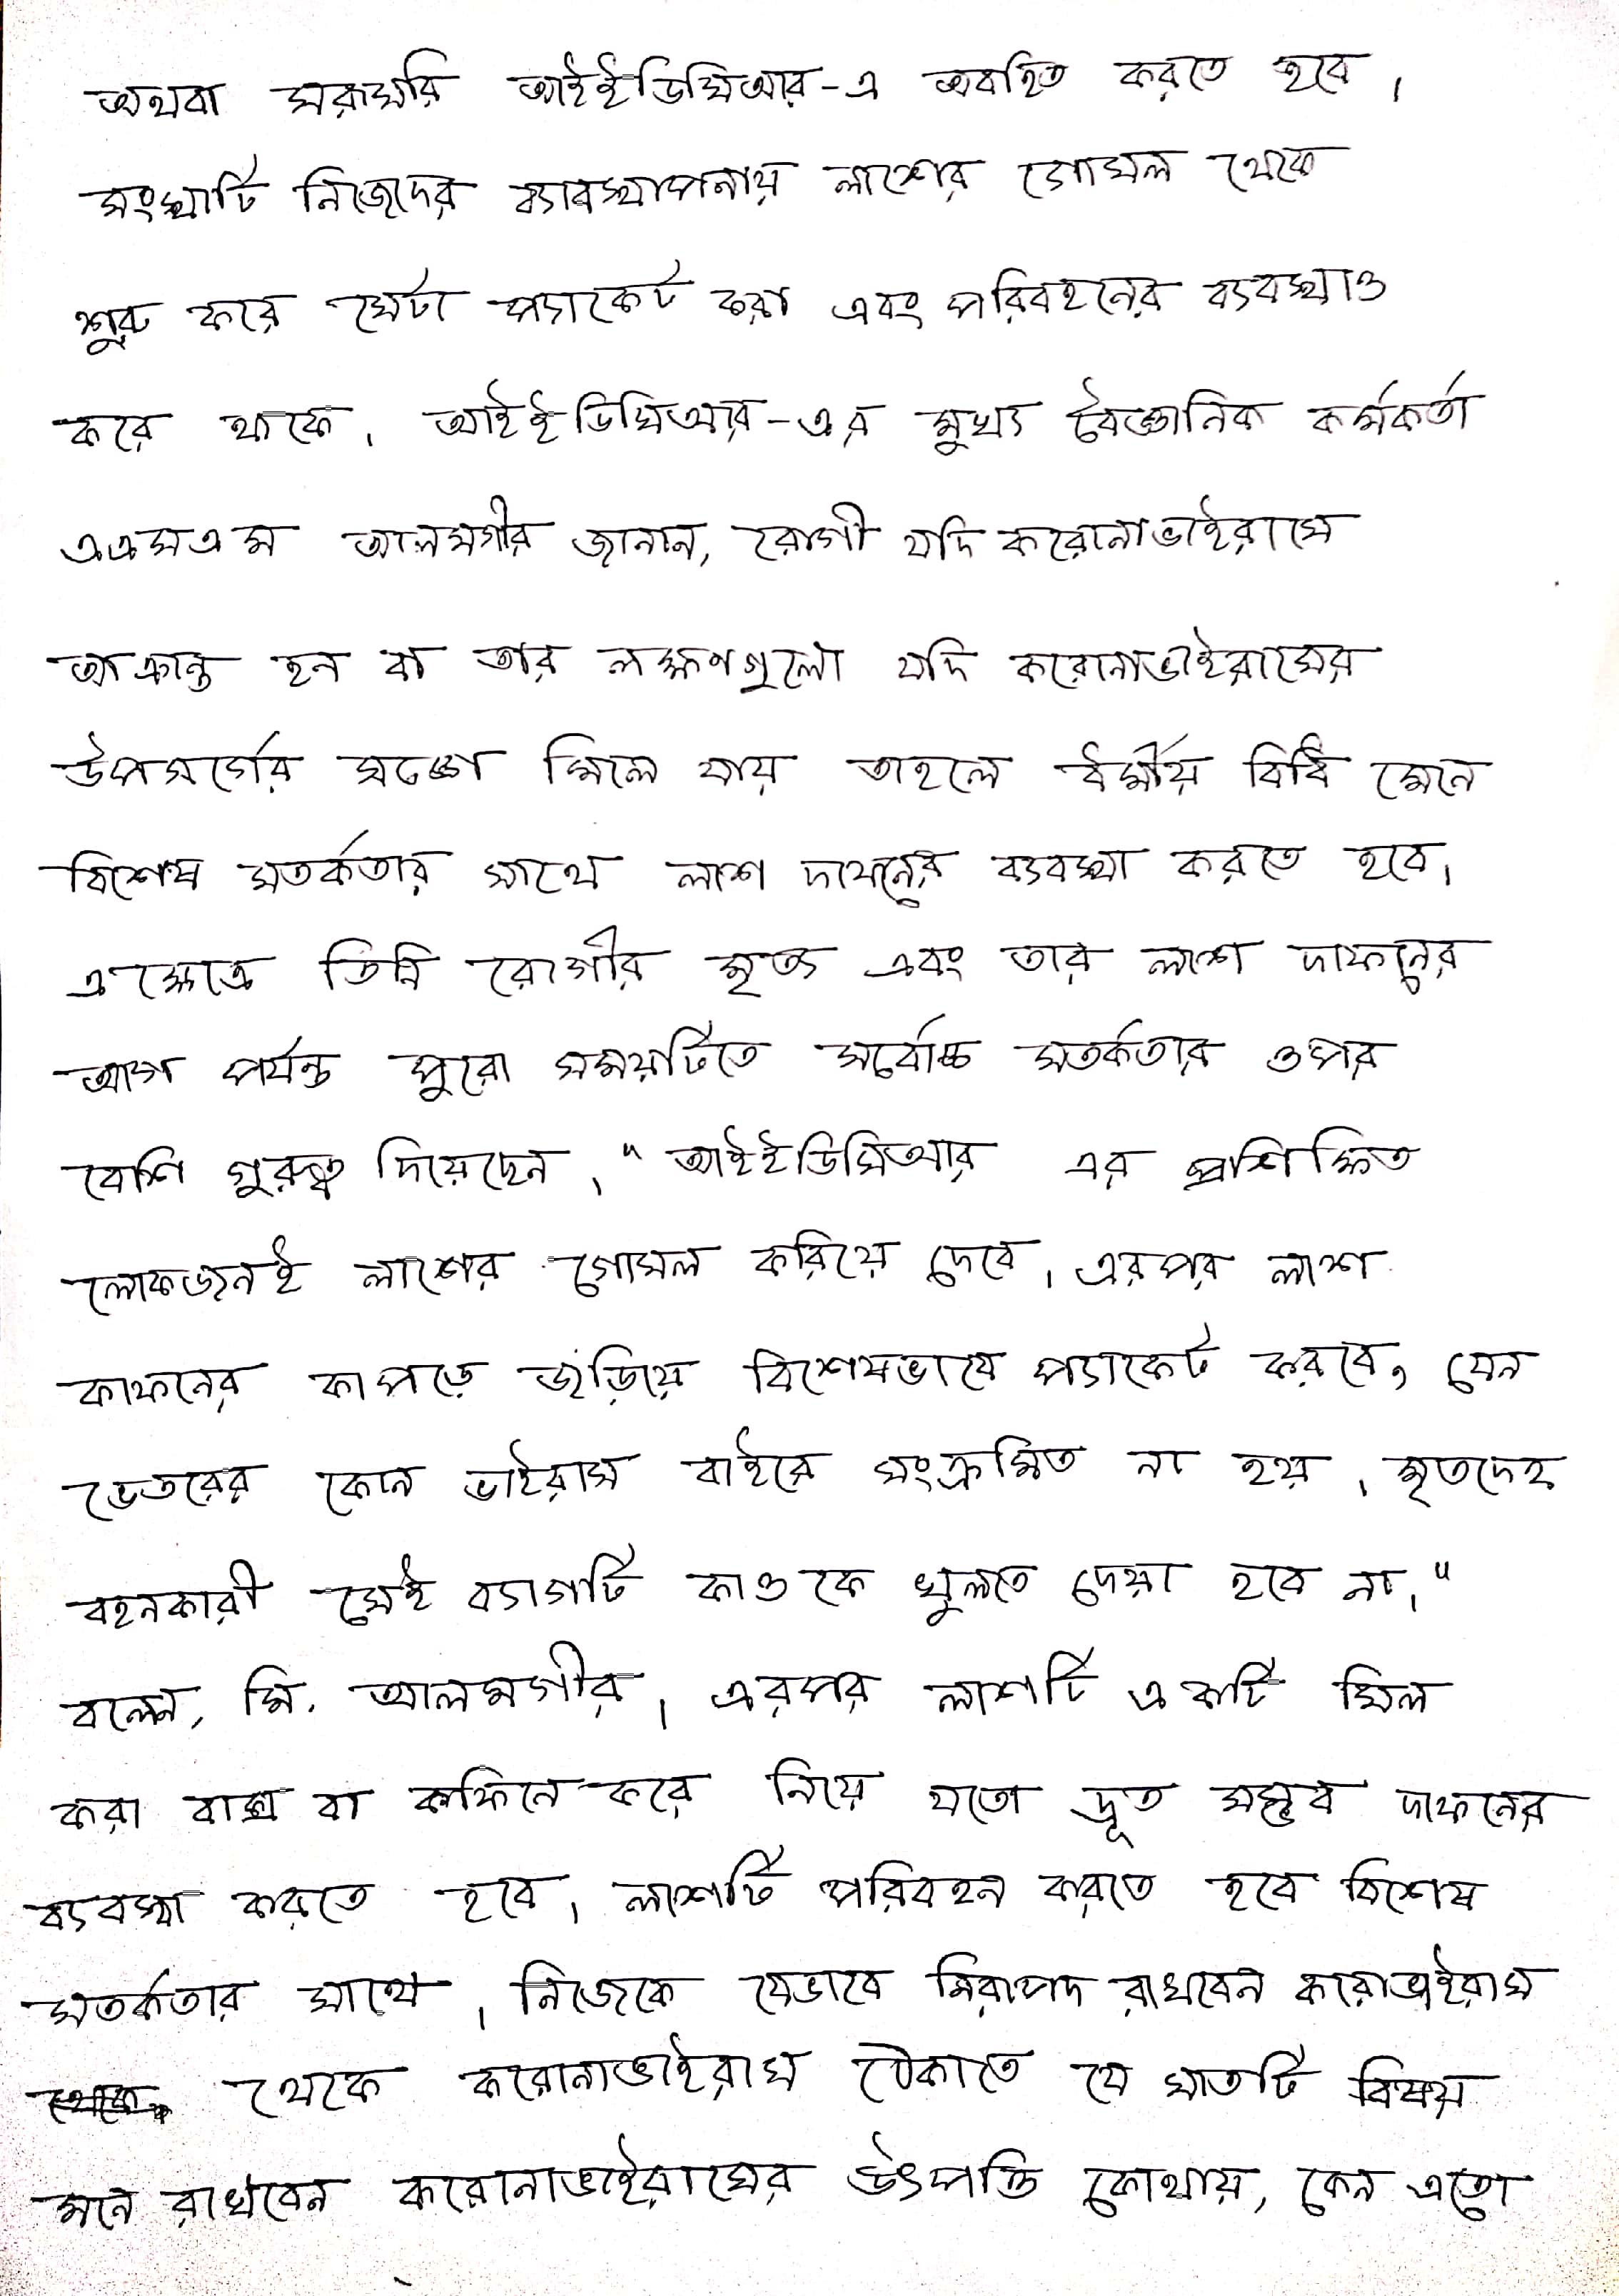 অথবা সরাসরি আইইডিসিআর-এ অবহিত করতে হবে।
সংস্থাটি নিজেদের ব্যাবস্থাপনায় লাশের গোসল থেকে
শুরু করে সেটা প্যাকেট করা এবং পরিবহনের ব্যবস্থাও
করে থাকে। আইইডিসিআর-এর মুখ্য বৈজ্ঞানিক কর্মকর্তা
এএমএম আলমগীর জানান, রোগী যদি করোনাভাইরাসে
আক্রান্ত হন বা তার লক্ষণগুলো যদি করোনাভাইরাসের
উপসর্গের সঙ্গে মিলে যায় তাহলে ধর্মীয় বিধি মেনে
বিশেষ সতর্কতার সাথে লাশ দাফনের ব্যবস্থা করতে হবে।
এক্ষেত্রে তিনি রোগীর মৃত্য এবং তার লাশ দাফনের
আগ পর্যন্ত পুরো সময়টিতে সর্বোচ্চ সতর্কতার ওপর
বেশি গুরুত্ব দিয়েছেন। "আইইডিসিআর এর প্রশিক্ষিত
লোকজনই লাশের গোসল করিয়ে দেবে। এরপর লাশ
কাফনের কাপড়ে জড়িয়ে বিশেষভাবে প্যাকেট করবে, যেন
ভেতরের কোন ভাইরাস বাইরে সংক্রমিত না হয়। মৃতদেহ
বহনকারী সেই ব্যাগটি কাওকে খুলতে দেয়া হবে না।"
বলেন, মি. আলমগীর। এরপর লাশটি একটি সিল
করা বাক্স বা কফিনে করে নিয়ে যতো দ্রুত সম্ভব দাফনের
ব্যবস্থা করতে হবে। লাশটি পরিবহন করতে হবে বিশেষ
সতর্কতার সাথে। নিজেকে যেভাবে নিরাপদ রাখবেন করোভাইরাস
থেকে করোনাভাইরাস ঠেকাতে যে সাতটি বিষয়
মনে রাখবেন করোনাভাইরাসের উৎপত্তি কোথায়, কেন এতো